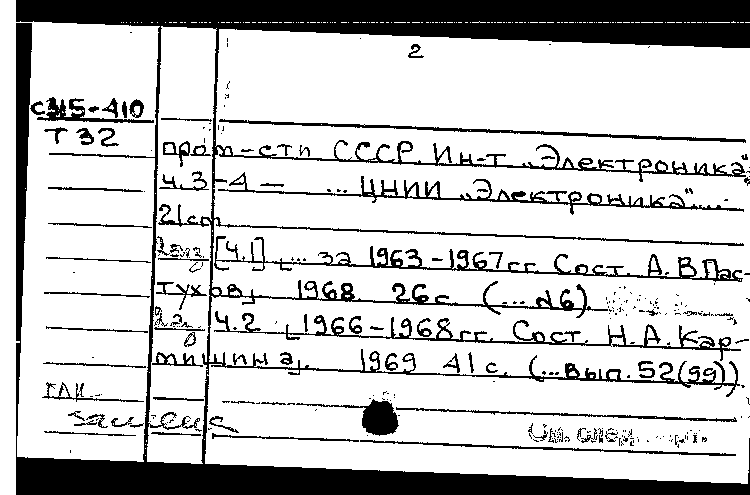 2
с315-410
Т 32
пром-сти СССР. Ин-т „Электроника“.
ч.3-4 — ... ЦНИИ „Электроника“....
21см
2 экз [Ч.1] [... за 1963-1967гг. Сост. А.В Пас-
тухов] 1968. 26с. (... №6)
2 э Ч.2 [1966-1968гг. Сост. Н.А. Кар-
тишина]. 1969 41с. (...Вып.52(99))
замена
См. след.